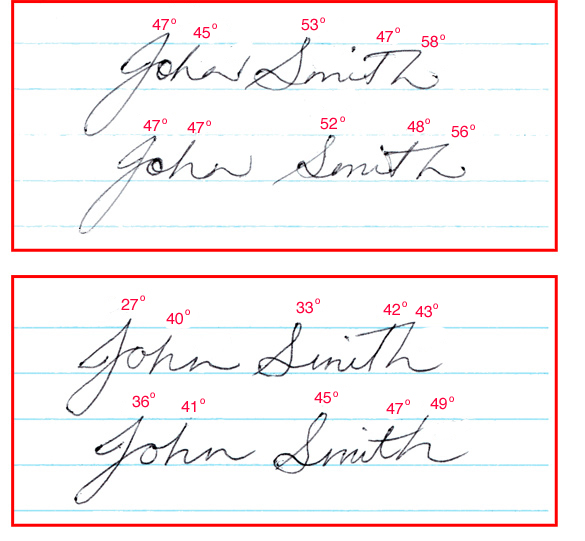 47° 45° 53° 47° 58°
John Smith
47° 47° 52° 48° 56°
John Smith
27° 40° 33° 42° 43°
John Smith
36° 41° 45° 47° 49°
John Smith